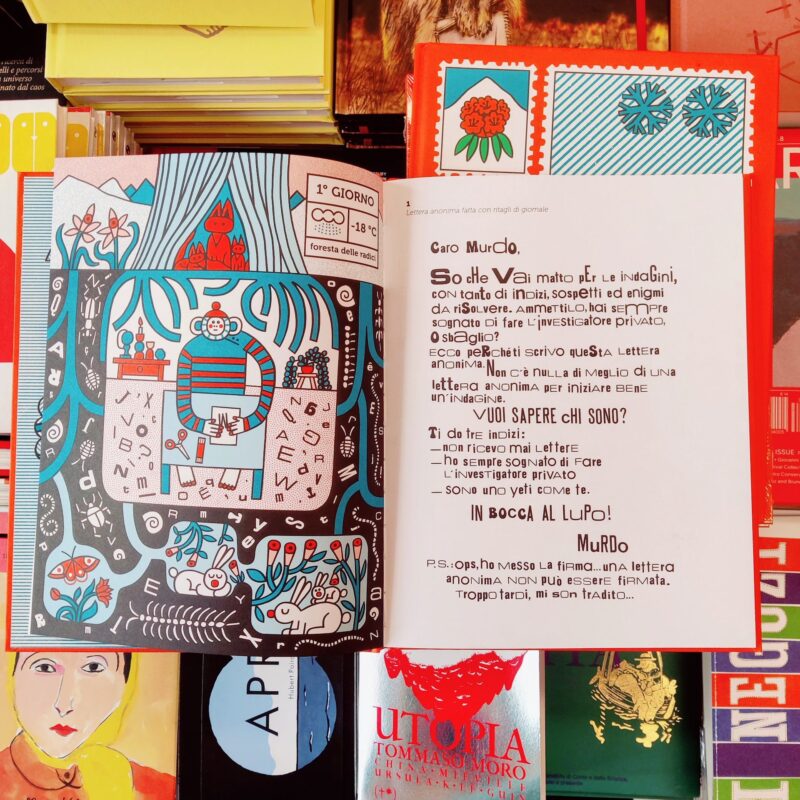 ricerca di
elli e percorsi
universo
nato dal caos
1° GIORNO
-18 °C
foresta delle radici
1
Lettera anonima fatta con ritagli di giornale
Caro Murdo,
So che Vai matto per le indagini,
con tanto di indizi, sospetti ed enigmi
da risolvere. Ammettilo, hai sempre
sognato di fare l'investigatore privato,
o sbaglio?
Ecco perché ti scrivo questa lettera
anonima. Non c'è nulla di meglio di una
lettera anonima per iniziare bene
un'indagine.
VUOI SAPERE CHI SONO?
Ti do tre indizi:
— non ricevo mai lettere
— ho sempre sognato di fare
l'investigatore privato
— sono uno yeti come te.
IN BOCCA AL LUPO!
MURDO
P.S.: ops, ho messo la firma... una lettera
anonima non può essere firmata.
Troppo tardi, mi son tradito...
ISSUE
APR
Hubert
UTOPIA
TOMMASO MORO
CHINA MIÉVILLE
URSULA K. LE GUIN
I NEGOZI